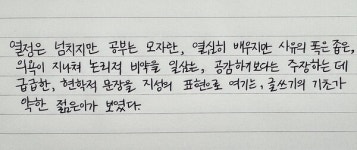 열정은 넘치지만 공부는 모자란, 열심히 배우지만 사유의 폭은 좁은,
의욕이 지나쳐 논리적 비약을 일삼는, 공감하기보다는 주장하는 데
급급한, 현학적 문장을 지성의 표현으로 여기는, 글쓰기의 기초가
약한 젊은이가 보였다.